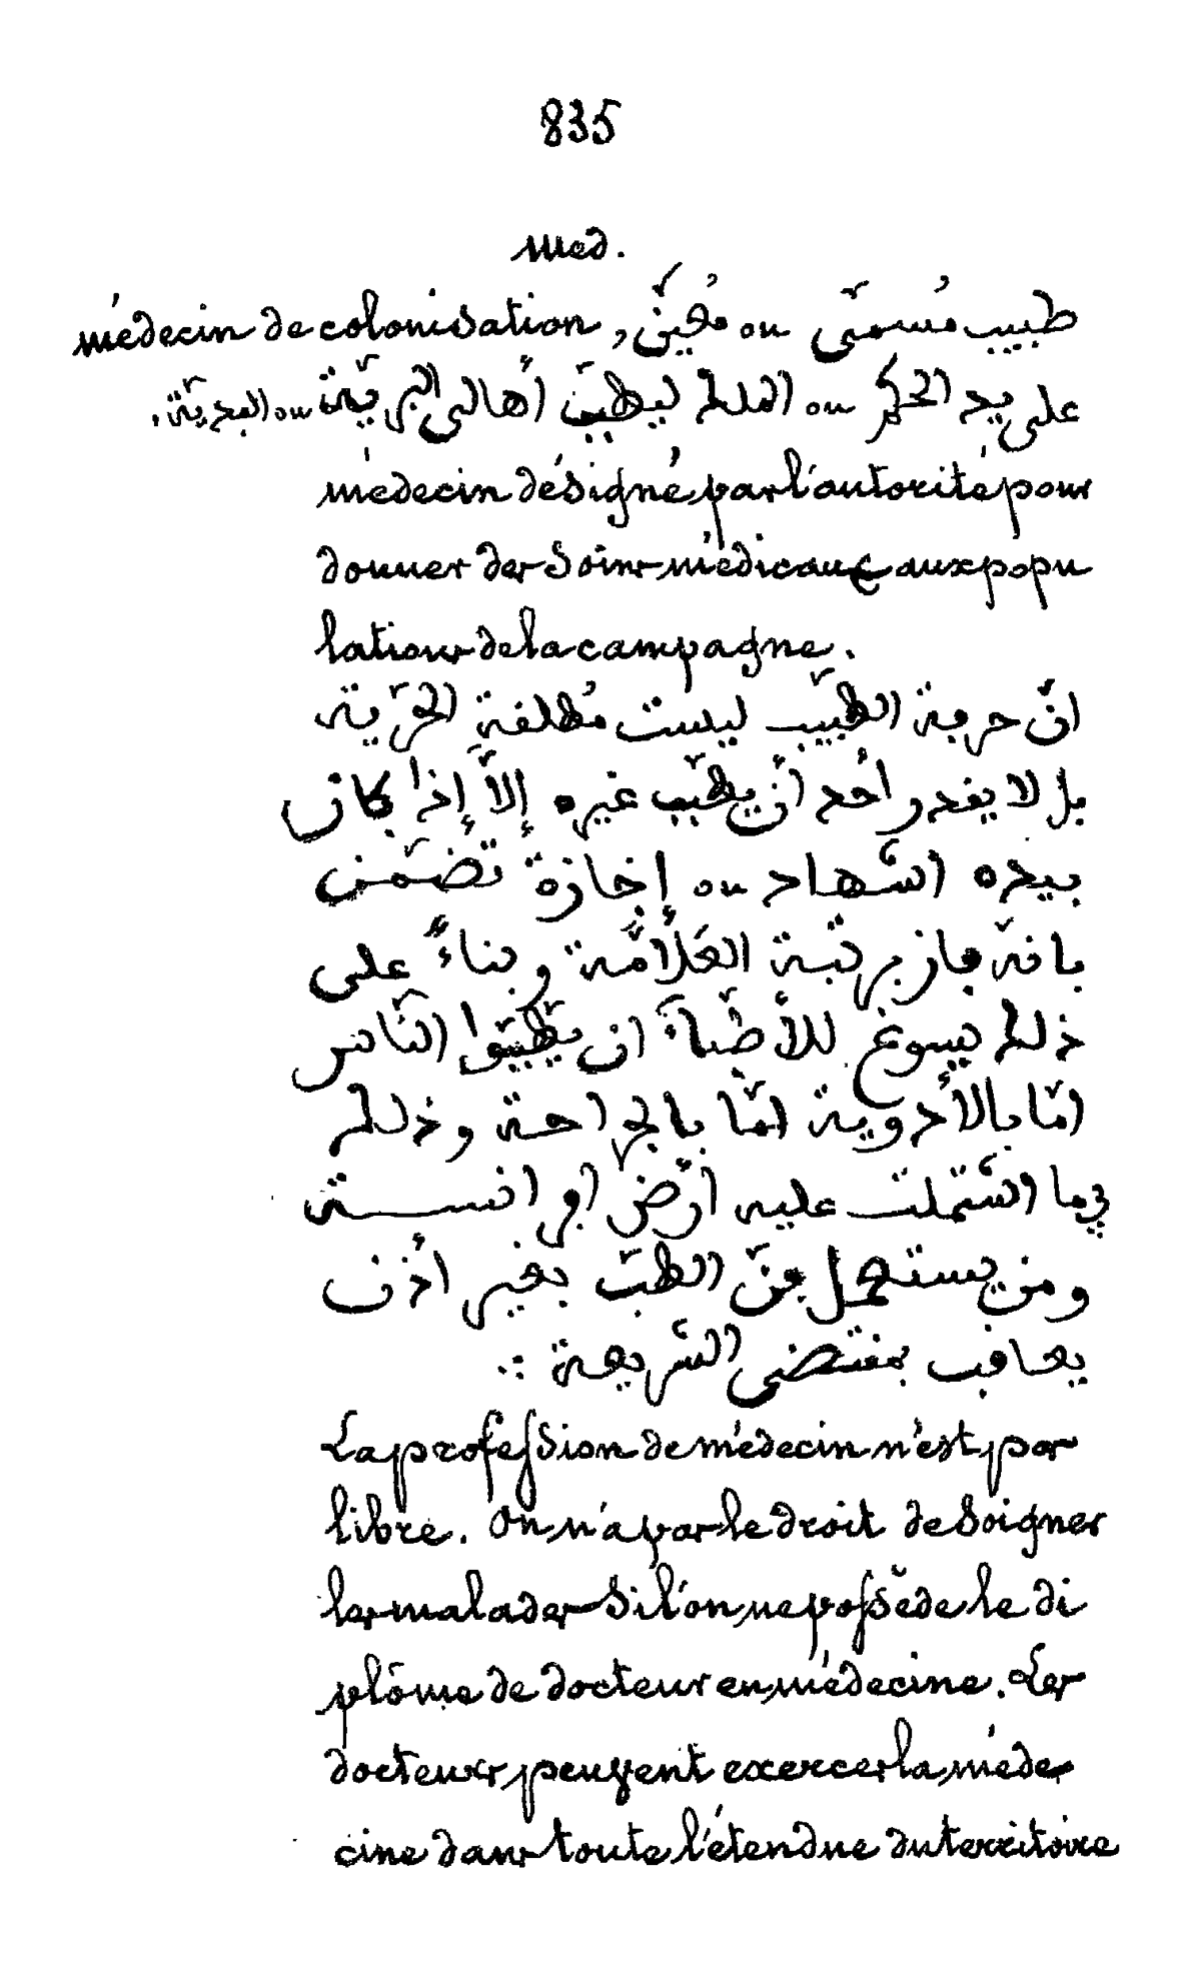 835
Med.
médecin de colonisation, طبيب مُسمّى ou مُعيّن
على يد الحكم ou الملك ليطبّب أهالى البريّة ou البدريّة.
médecin désigné par l'autorité pour
donner des soins médicaux aux popu
lations de la campagne.
انّ حرفة الطبيب ليست مُطلفةِ الحرّية
بل لا يفدر أحد أن يطبّب غيره إلاّ إذا كان
بيده اشهاد ou إجازة تضمّن
بانه فاز برتبة العَلاّمة وبناءً على
ذلك يسوغ للأطبّاء ان يطبّبوا النّاس
امّا بالأدوية امّا بالجراحة وذلك
فيما اشتملت عليه أرض افرانسة
ومن يستعمل فنّ الطبّ بغير أذن
يعافب بمفتضى الشريعة :.
La profession de médecin n'est pas
libre. On n'a pas le droit de soigner
les malades si l'on ne possède le di
plôme de docteur en médecine. Les
docteurs peuvent exercer la méde
cine dans toute l'étendue du territoire